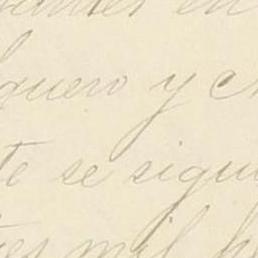 en
quero y c
te se sigui
tes mil h